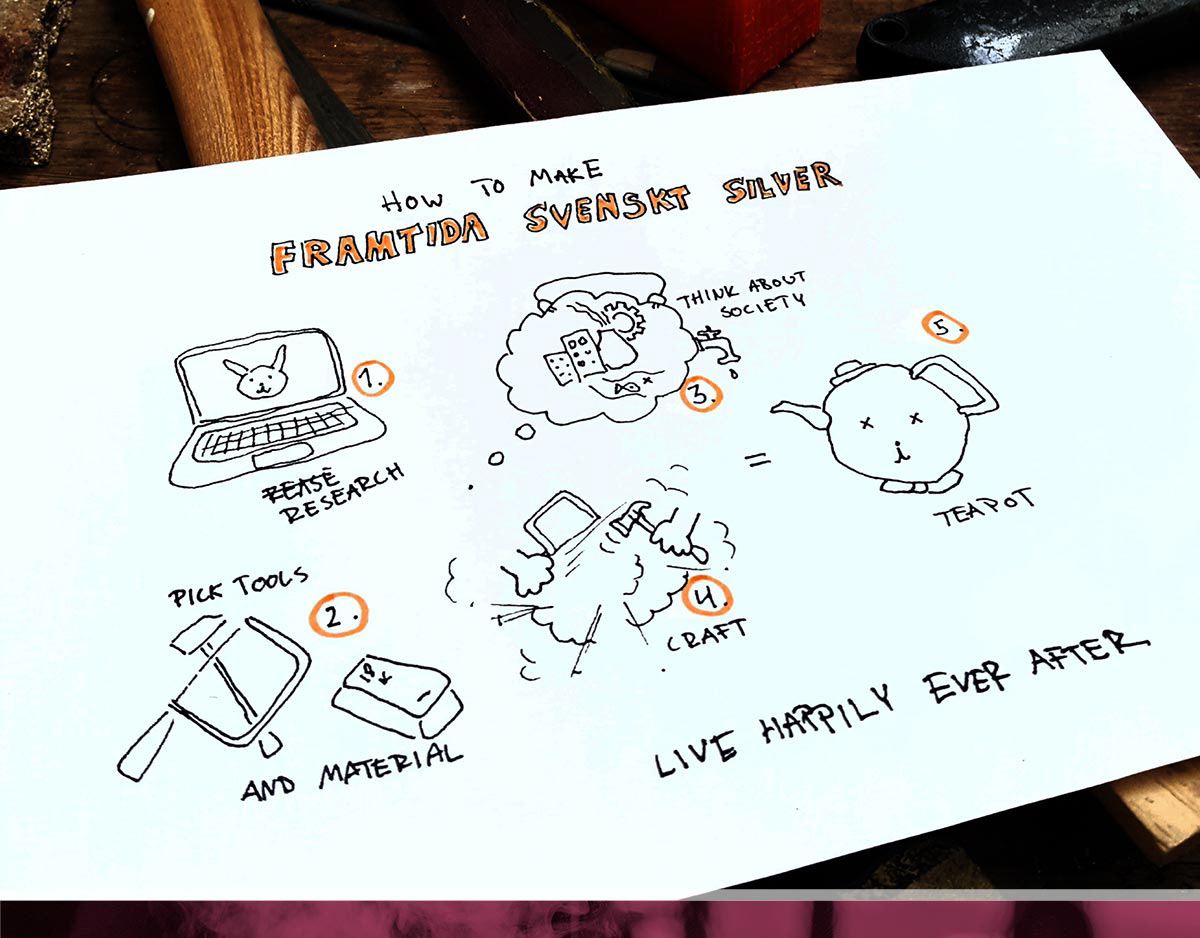 HOW TO MAKE
FRAMTIDA SVENSKT SILVER
1.
RESEARCH
PICK TOOLS
2.
AND MATERIAL
THINK ABOUT
SOCIETY
3.
4.
CRAFT
=
5.
TEAPOT
LIVE HAPPILY EVER AFTER